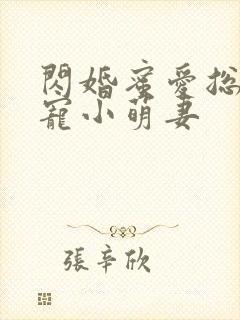 閃婚蜜愛总
寵小萌妻
張辛欣